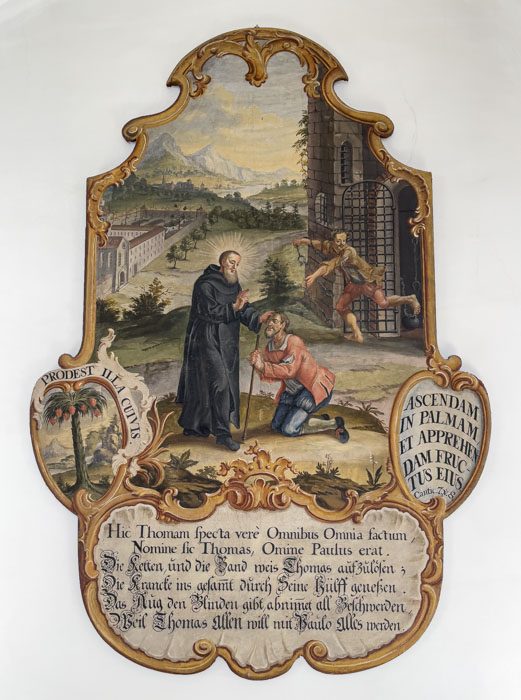 PRODEST ILLA CUIVIS
ASCENDAM
IN PALMAM
ET APPREHEN
DAM FRUC-
TUS EIUS
Cantic. 7.v.8.
Hic Thomam specta verè Omnibus Omnia factum,
Nomine sic Thomas, Omine Paulus erat.
Die Ketten, und die Band weis Thomas aufzulösen;
Die Krancke ins gesamt durch Seine Hülff geneßen.
Das Aug den Blinden gibt, abnimt all Beschwerden,
Weil Thomas Allen will mit Paulo Alles werden.